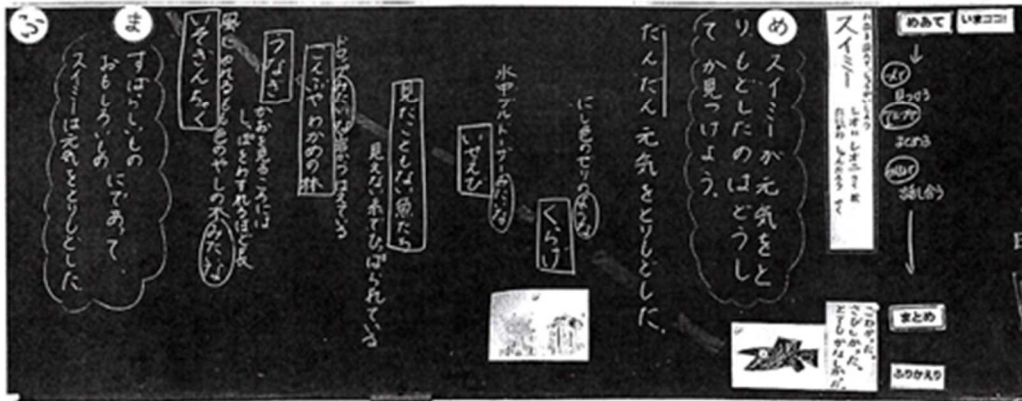 いまココ!
めあて
見つける
まとめる
話し合う
まとめ
ふりかえり
スイミー
レオ=レオニ
こわかった。
さびしかった。
とてもかなしかった。
め
スイミーが元気をと
りもどしたのはどうし
てか見つけよう。
だんだん元気をとりもどした。
にじ色のゼリーのような
くらげ
水中ブルドーザーみたいな
いせえび
見たこともない魚たち
見えない糸でひっぱられている
ドロップみたいな岩から生えている
こんぶやわかめの林
うなぎ
かおを見るころには
しっぽをわすれるほど長い
風にゆれるもも色のやしの木みたいな
いそぎんちゃく
ま
すばらしいもの
おもしろいもの にであって、
スイミーは元気をとりもどした
ふ